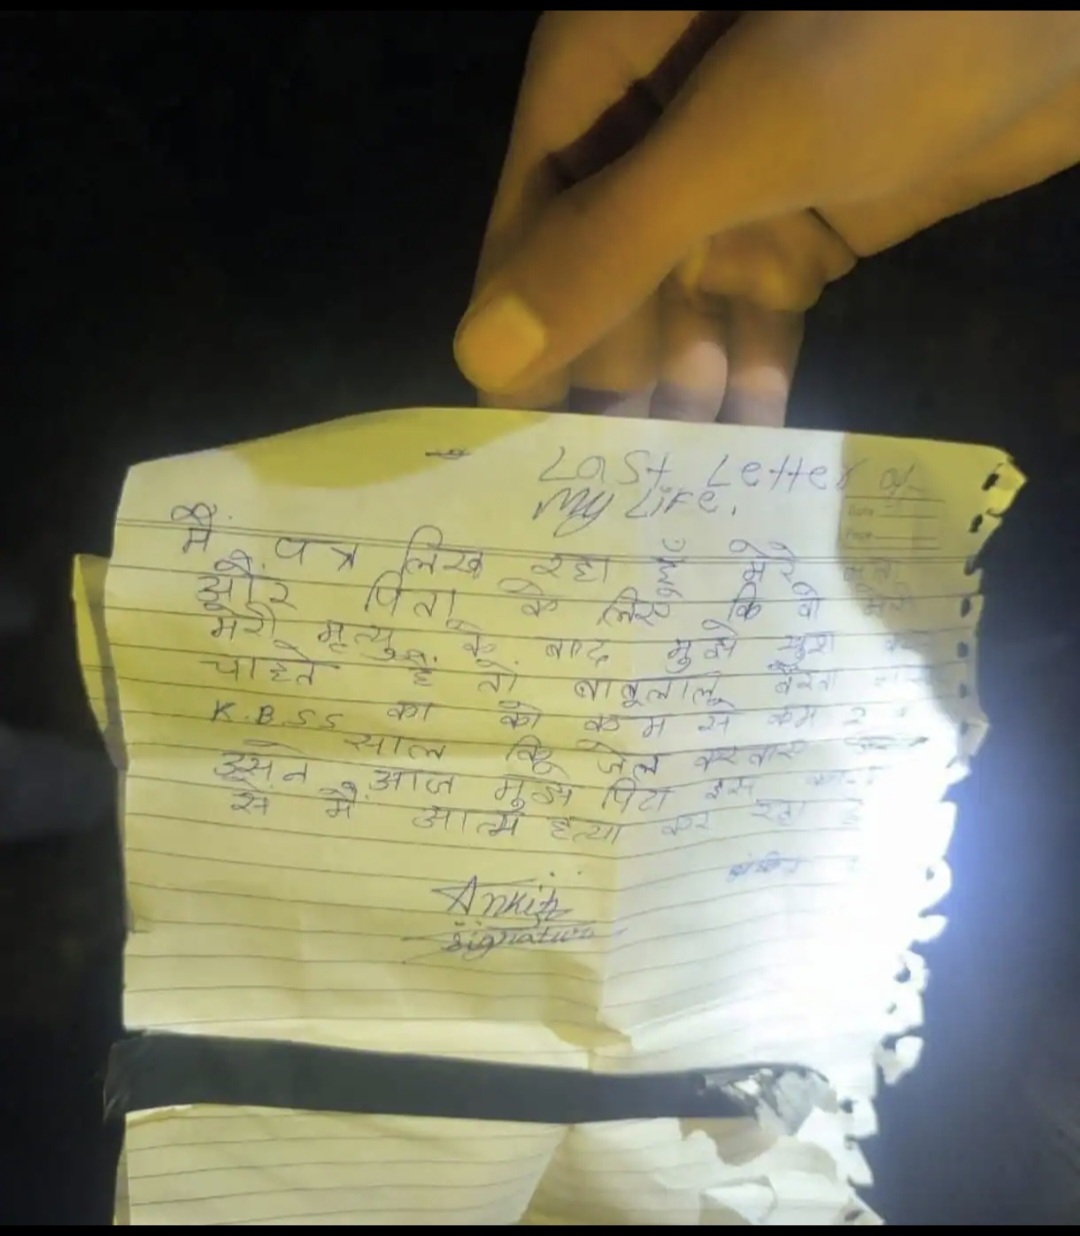 Last Letter of
My Life.
मैं पत्र लिख रहा हूँ मेरे
और पिता के लिए कि वो मेरी
मेरी मृत्यु के बाद मुझे खुश
चाहते है तो बाबूलाल
K.B.S.S का को कम से कम
साल कि जेल करवाए
उसने आज मुझे पिटा इस
से मैं आत्म हत्या कर रहा
अंकित
Ankit
Signature